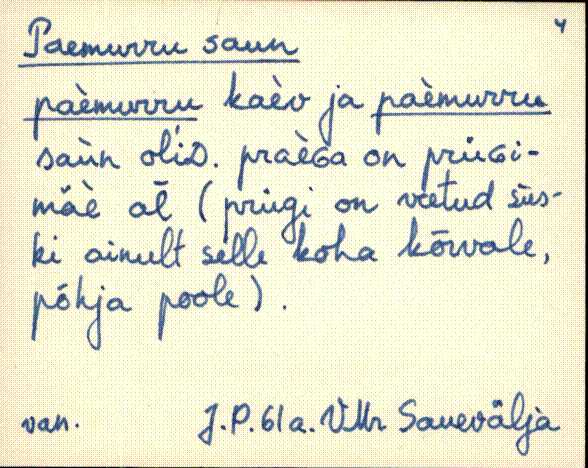 4
Paemurru saun
paèmurru kaèv ja paèmurru
saùn olid. praèGa on prüGi-
mäè al̄ (prügi on veetud siis-
ki ainult selle koha kõrvale,
põhja poole).
van. J.P. 61 a. VMr Sauevälja